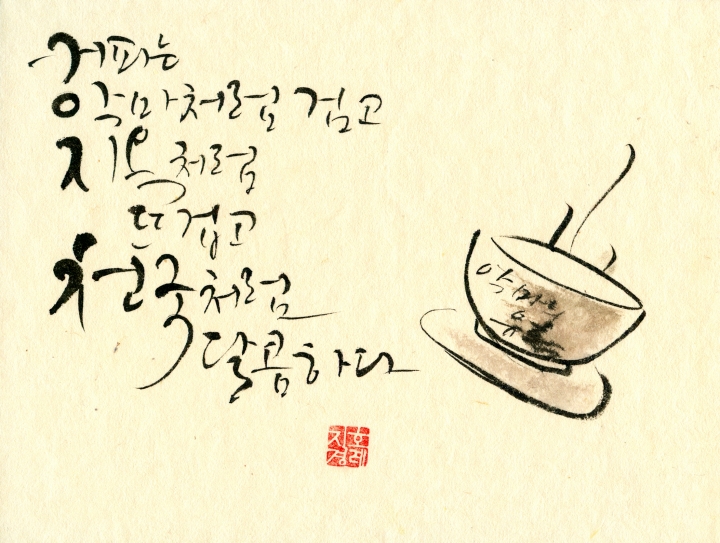 커피는
악마처럼 검고
지옥처럼
뜨겁고
천국처럼
달콤하다
악마의
유혹